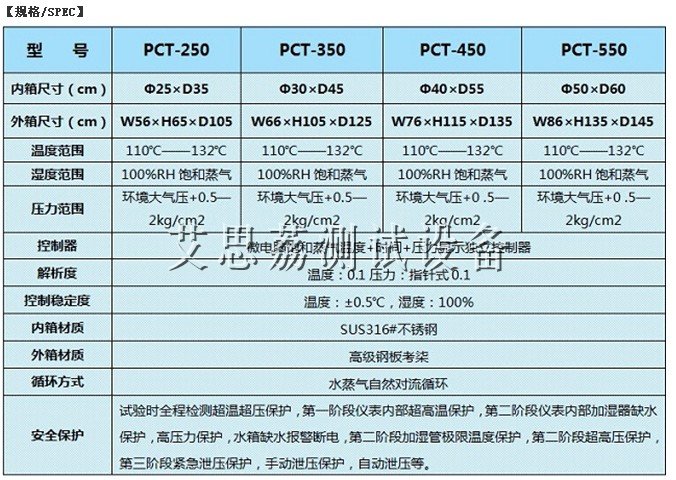 【规格/SPEC】
型 号 PCT-250 PCT-350 PCT-450 PCT-550
内箱尺寸（cm） Φ25×D35 Φ30×D45 Φ40×D55 Φ50×D60
外箱尺寸（cm） W56×H65×D105 W66×H105×D125 W76×H115×D135 W86×H135×D145
温度范围 110℃——132℃ 110℃——132℃ 110℃——132℃ 110℃——132℃
湿度范围 100%RH 饱和蒸气 100%RH 饱和蒸气 100%RH 饱和蒸气 100%RH 饱和蒸气
压力范围 环境大气压+0.5— 环境大气压+0.5— 环境大气压+0 .5— 环境大气压+0 .5—
2kg/cm2 2kg/cm2 2kg/cm2 2kg/cm2
控制器 微电脑饱和蒸气温度+时间+压力显示独立控制器
艾思荔测试设备
解析度 温度：0.1 压力：指针式 0.1
控制稳定度 温度：±0.5℃，湿度：100%
内箱材质 SUS316#不锈钢
外箱材质 高级钢板考柒
循环方式 水蒸气自然对流循环
安全保护 试验时全程检测超温超压保护，第一阶段仪表内部超高温保护，第二阶段仪表内部加湿器缺水
保护，高压力保护，水箱缺水报警断电，第二阶段加湿管极限温度保护，第二阶段超高压保护，
第三阶段紧急泄压保护，手动泄压保护，自动泄压等。